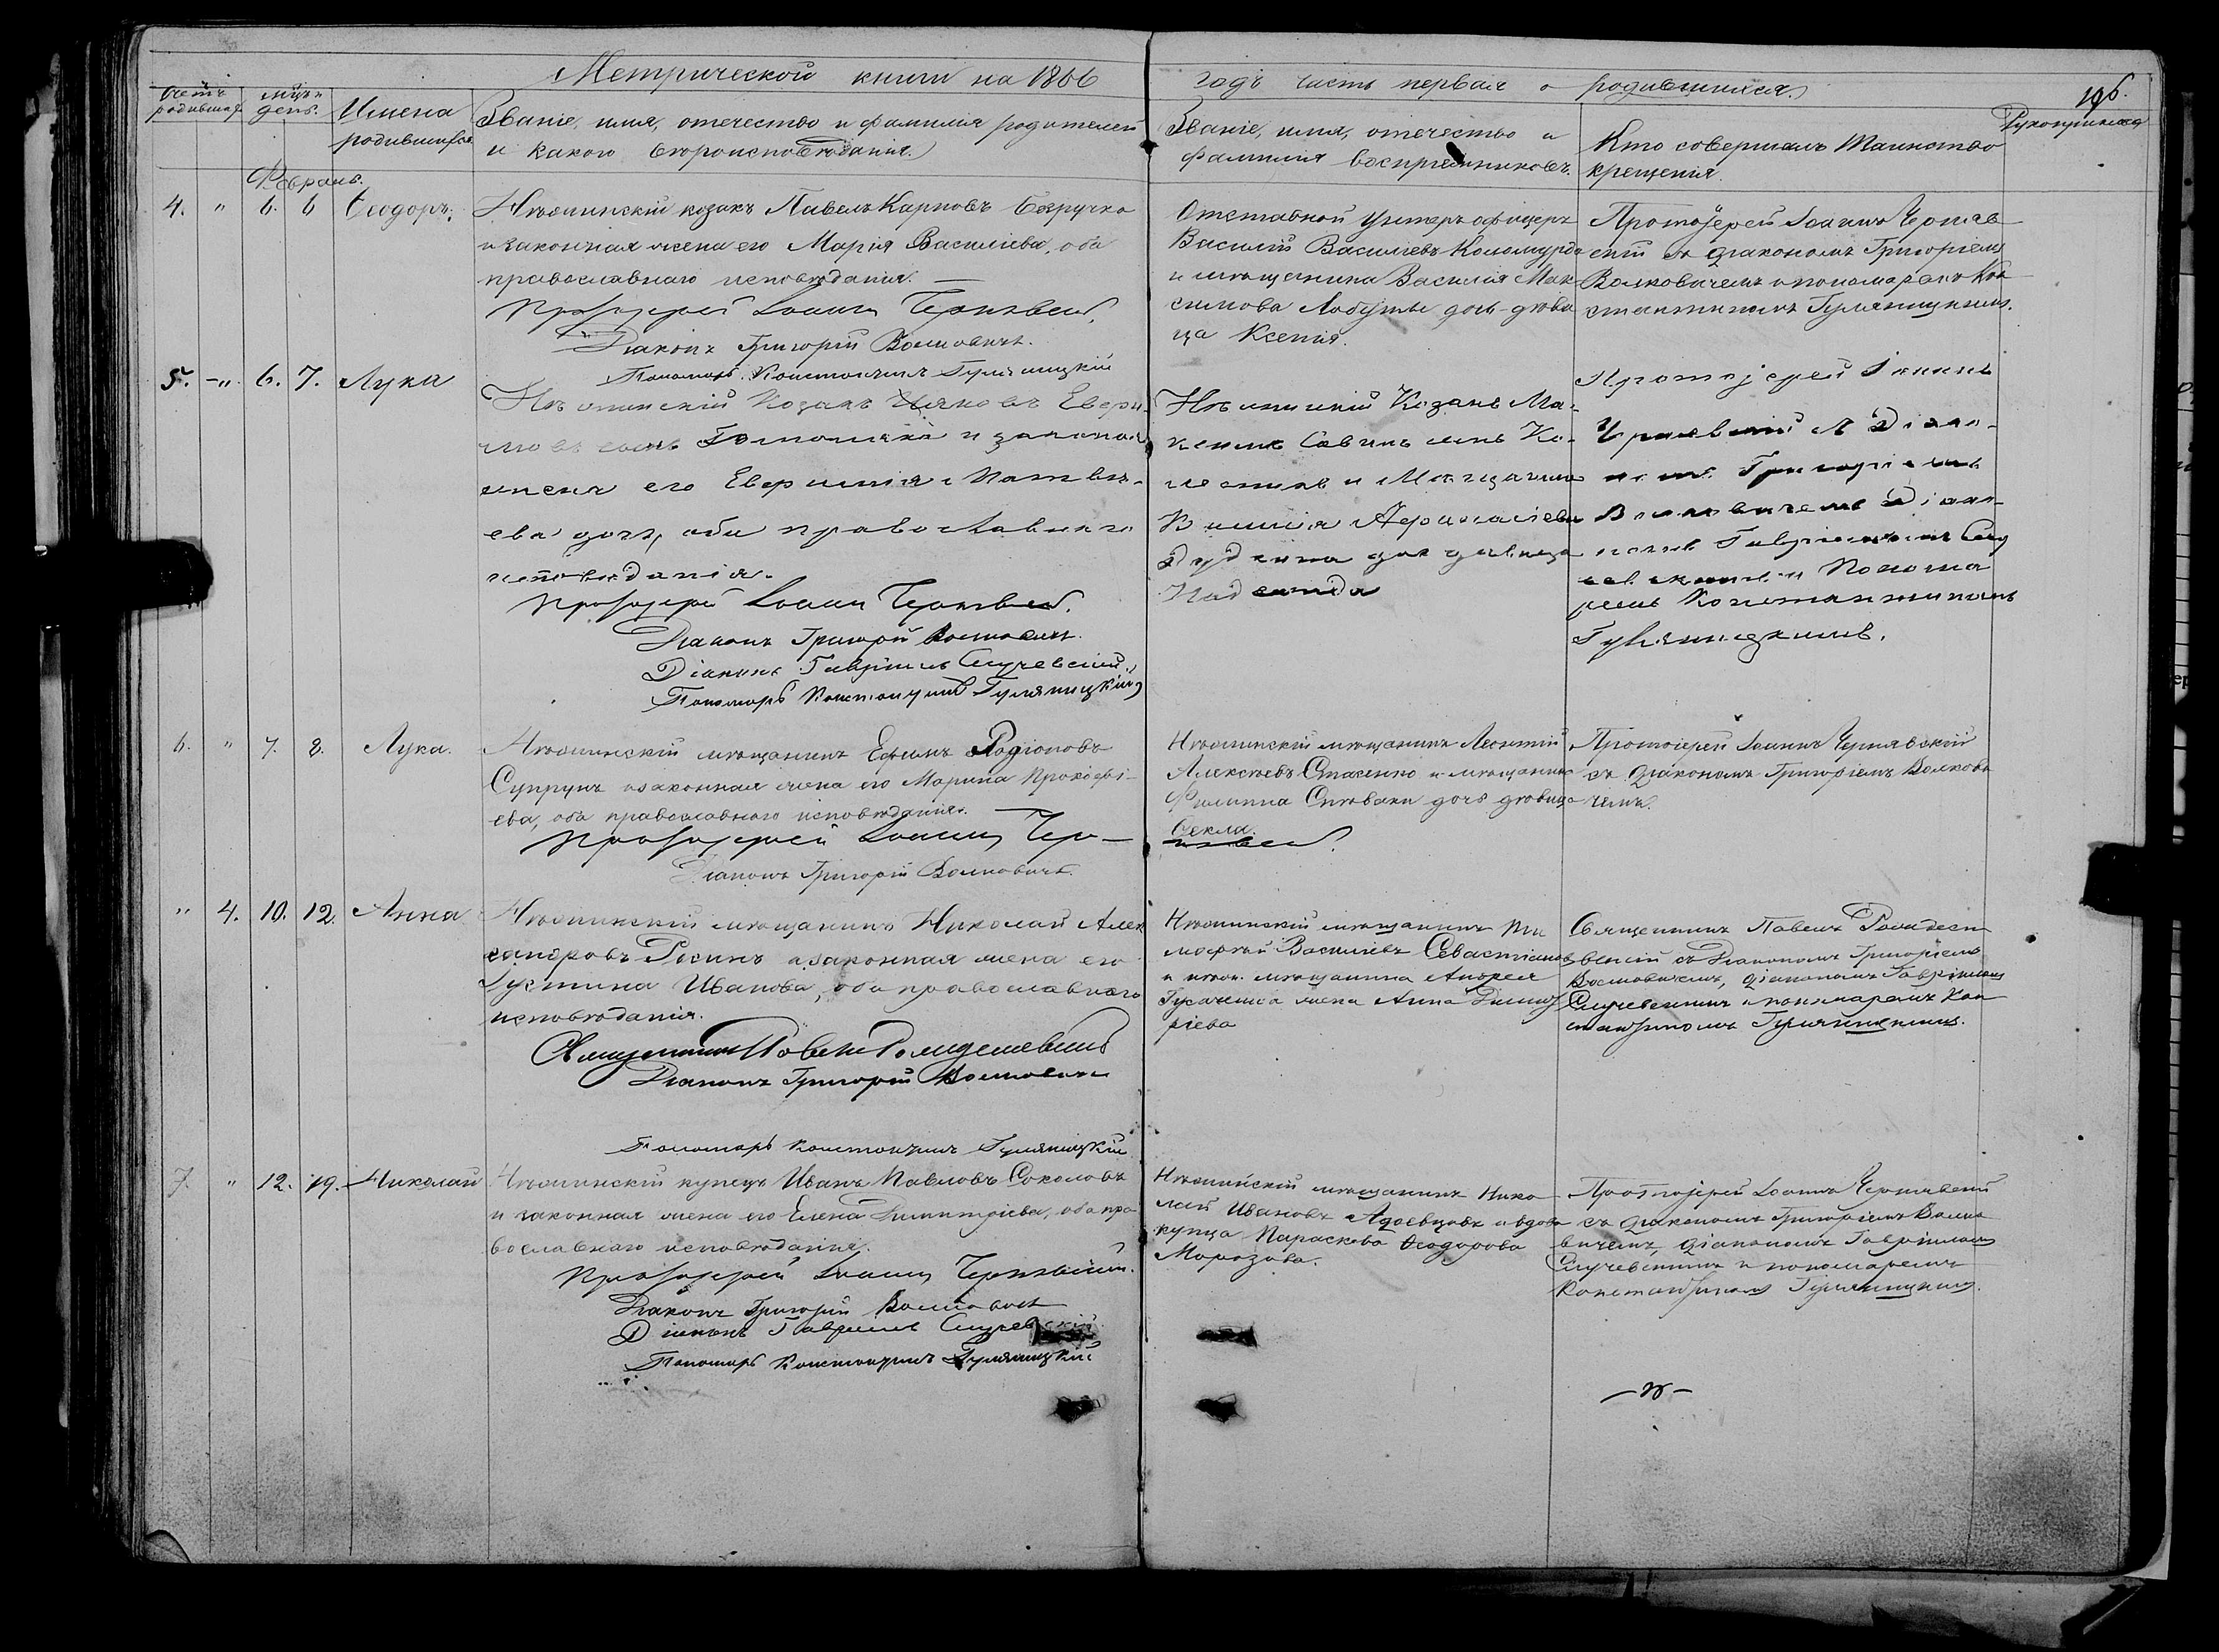 Метрической книги на 1866
годъ часть первая о родившихся.
196.
Счетъ родившихся
мцъ и день.
Имена родившихся
Званіе, имя, отечество и фамилія родителей
и какого вѣроисповѣданія.
Званіе, имя, отечество и
фамилія воспріемниковъ.
Кто совершалъ таинство
крещенія.
Рукоприклад
Февраль.
4. " 6. 6 Ѳеодоръ.
Нѣжинскій козакъ Павелъ Карповъ
и законная жена его Марія Васильева, оба
православнаго исповѣданія.
Протоіерей Іоаннъ Чернявскій.
Діаконъ Григорій Волковичъ.
Пономарь Константинъ Гуляницкій
Отставной унтеръ офицеръ
Василій Васильевъ
и мѣщанина Василія Мак
симова дочь дѣви
ца Ксенія.
Протоіерей Іоаннъ Черняв
скій съ діакономъ Григоріемъ
Волковичемъ и пономаремъ Кон
стантиномъ Гуляницкимъ.
5. " 6. 7. Лука
Нѣжинскій Козакъ Яковъ
сынъ и законная
жена его Евфимія Матвѣ-
ева дочь, оба православнаго
исповѣданія.
Протоіерей Іоаннъ Чернявскій.
Діаконъ Григорій Волковичъ.
Діаконъ Гавріилъ Случевскій.
Пономарь Константинъ Гуляницкій
Нѣжинскій Козакъ Ма-
Савинъ сынъ
и Мѣщанина
дочь дѣвица
Протоіерей Іоаннъ
Чернявскій съ Діако-
номъ Григоріемъ
Волковичемъ Діако-
номъ Гавріиломъ Слу
чевскимъ и Понома
ремъ Константиномъ
Гуляницкимъ.
6. " 7. 8. Лука.
Нѣжинскій мѣщанинъ Ефимъ Родіоновъ
Супрунъ и законная жена его Марина Прокофі-
ева, оба православнаго исповѣданія.
Протоіерей Іоаннъ Чер-
нявскій.
Діаконъ Григорій Волковичъ.
Нѣжинскій мѣщанинъ Леонтій
Алексѣевъ Стасенко и мѣщанина
Филиппа Спѣваки дочь дѣвица
Ѳекла.
Протоіерей Іоаннъ Чернявскій
съ діакономъ Григоріемъ Волкови
чемъ.
" 4. 10. 12. Анна
Нѣжинскій мѣщанинъ Николай Алек
сандровъ Росинъ и законная жена его
Іустина Иванова, оба православнаго
исповѣданія.
Священникъ Павелъ
Діаконъ Григорій Волковичъ
Пономарь Константинъ Гуляницкій
Нѣжинскій мѣщанинъ Ти
мофѣй Васильевъ Севастіановъ
и нѣжин. мѣщанина Андрея
жена Анна Димит
ріева
Священникъ Павелъ
съ Діакономъ Григоріемъ
Волковичемъ, діакономъ Гавріиломъ
Случевскимъ и пономаремъ Кон
стантиномъ Гуляницкимъ.
7. " 12. 19. Николай
Нѣжинскій купецъ Иванъ Павловъ Соколовъ
и законная жена его Елена Димитріева, оба пра
вославнаго исповѣданія.
Протоіерей Іоаннъ Чернявскій.
Діаконъ Григорій Волковичъ
Діаконъ Гавріилъ Случевскій.
Пономарь Константинъ Гуляницкій
Нѣжинскій мѣщанинъ Нико
лай Ивановъ и вдова
купца Параскева Ѳеодорова
Морозова.
Протоіерей Іоаннъ Чернявскій
съ діакономъ Григоріемъ Волко
вичемъ, діакономъ Гавріиломъ
Случевскимъ и пономаремъ
Константиномъ Гуляницкимъ.